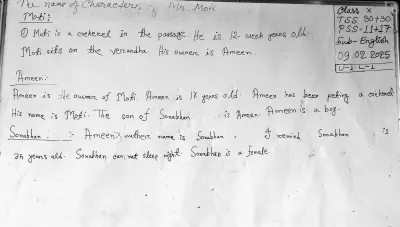 The name of Characters of Mr. Moti
Class X
TSS 30+30
PSS-11+17
Sub- English
09.02.2025
U-2.L-1
Moti:
① Moti is a cockerel in the passage. He is 12-week years old.
Moti sits on the verandha. His owner is Ameen.
Ameen:
Ameen is the owner of Moti. Ameen is 17 years old. Ameen has been peting a cockerel
His name is Moti. The son of Sonabhan is Ameen. Ameen is a boy.
Sonabhan :- Ameen's mother name is Sonabhan. If remind, Sonabhan is
years old. Sonabhan can not sleep night. Sonabhan is a female.